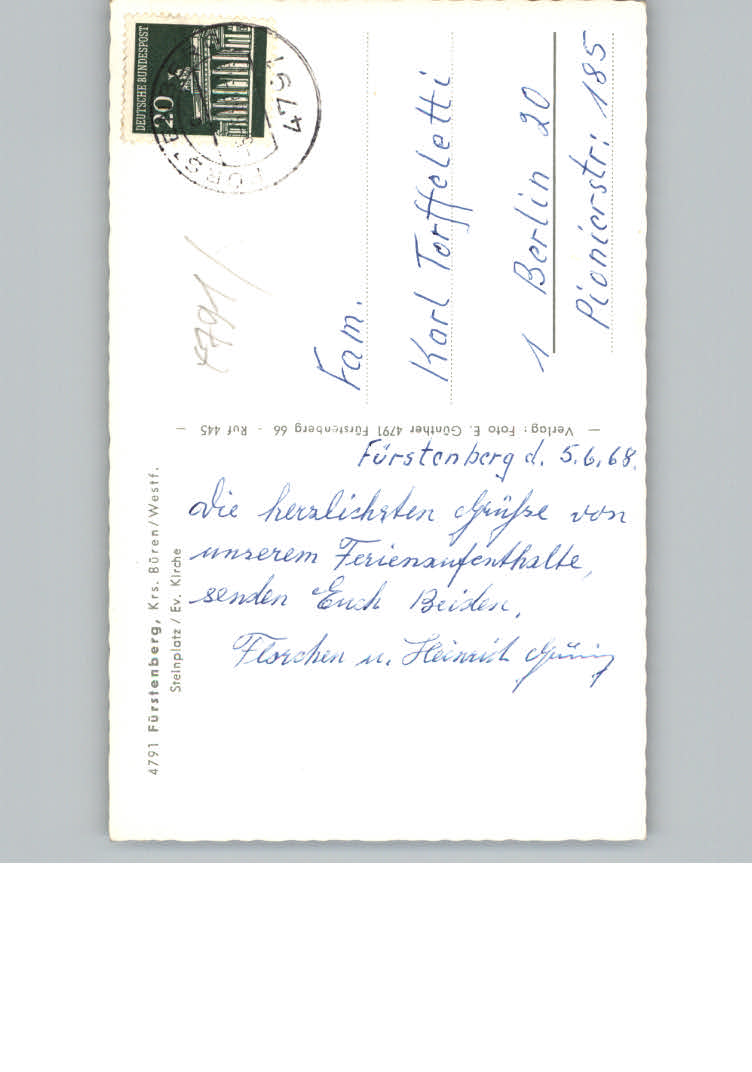 DEUTSCHE BUNDESPOST
20
4791
4791
Fam.
Karl Torffeletti
1 Berlin 20
Pionierstr: 185
— Verlag: Foto E. Günther 4791 Fürstenberg 66 - Ruf 445 —
4791 Fürstenberg, Krs. Büren/Westf.
Steinplatz / Ev. Kirche
Fürstenberg d. 5.6.68.
Die herzlichsten Grüße von
unserem Ferienaufenthalte,
senden Euch Beiden,
Florchen u. Heinrich